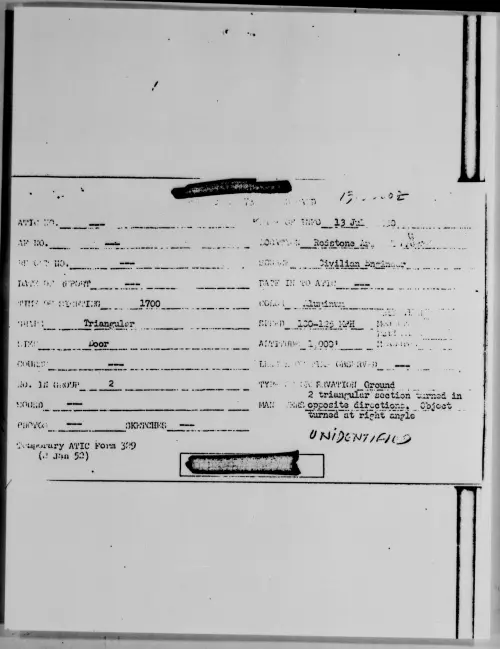 ATIC NO. --- DATE OF INFO 13 Jul
AF NO. --- LOCATION Redstone
REPORT NO. --- SOURCE Civilian Engineer
DATE OF REPORT --- DATE IN TO ATIC ---
TIME OF SIGHTING 1700 COLOR Aluminum
SHAPE Triangular SPEED 100-125 MPH
SIZE Door ALTITUDE 1,000'
COURSE --- OBSERVED ---
NO. IN GROUP 2 TYPE OF OBSERVATION Ground
2 triangular section turned in
SOUND --- opposite directions. Object
turned at right angle
PHOTOS --- SKETCHES ---
UNIDENTIFIED
Temporary ATIC Form 329
(2 Jan 52)